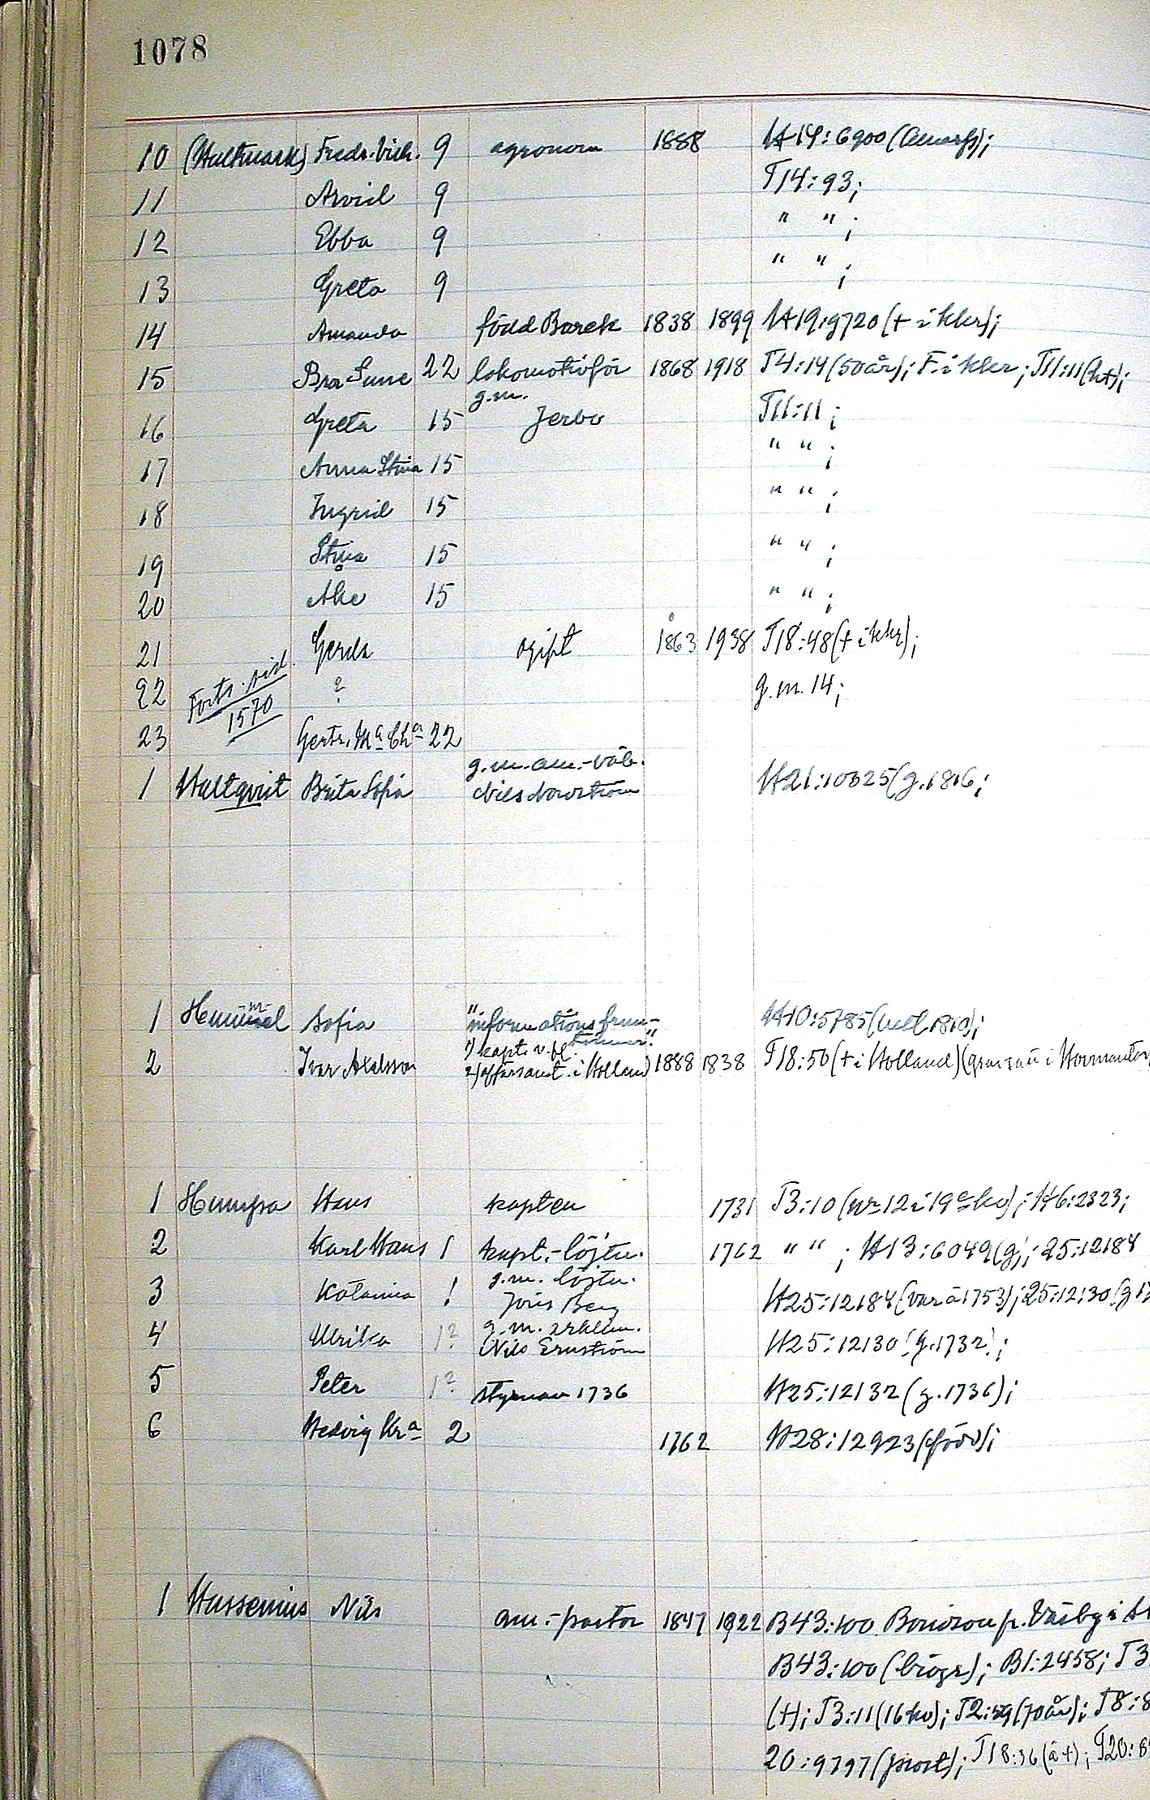 1078
10 (Hultmark) Fredr. Vilh. 9 agronom 1888 H19:6900
11 Arvid 9 T14:93;
12 Ebba 9 " " ;
13 Greta 9 " " ;
14 Amanda född Barck 1838 1899 H19:9720 († i Kkr);
15 Bror Sune 22 lokomotivför 1868 1918 T4:14 (50 år); F. i Kkr; T11:11
g.m.
16 Greta 15 Jerbo T11:11;
17 Anna Stina 15 " " ;
18 Ingrid 15 " " ;
19 Stina 15 " " ;
20 Åke 15 " " ;
21 Gerda ogift 1863 1938 T18:48 († i kkr);
22 Forts. sid. 1570 ? g.m. 14;
23 Gertr. Ma Cha 22
g.m.
1 Hultqvist Brita Sofia Nils H21:10325 (g. 1816;
1 Hummel Sofia "informations H10:5785
1) kapt. v. fl.
2 Ivar Axelsson 2) i Holland 1888 1838 T18:50 († i Holland)
1 Humpa Hans kapten 1731 T3:10 (nr 12 i 19e ko); H6:2323;
2 Karl Hans 1 kapt.-löjtn. 1762 " " ; H13:6049 (g); 25:12184
g.m. löjtn.
3 Katarina 1 Jöns Berg H25:12184 (var å 1753); 25:12130
g.m.
4 Ulrika 1? Nils Ernström H25:12130 (g. 1732);
5 Peter 1? styrman 1736 H25:12132 (g. 1736);
6 Hedvig Kra 2 1762 H28:12923 (född);
1 Hussenius Nils am.-pastor 1847 1922 B43:100
B43:100 (biogr); B1:2458; T3
(†); T3:11 (16 ko); T2:59 (70 år); T8:8
20:9797 (prost); T18:36 (å †); T20:8